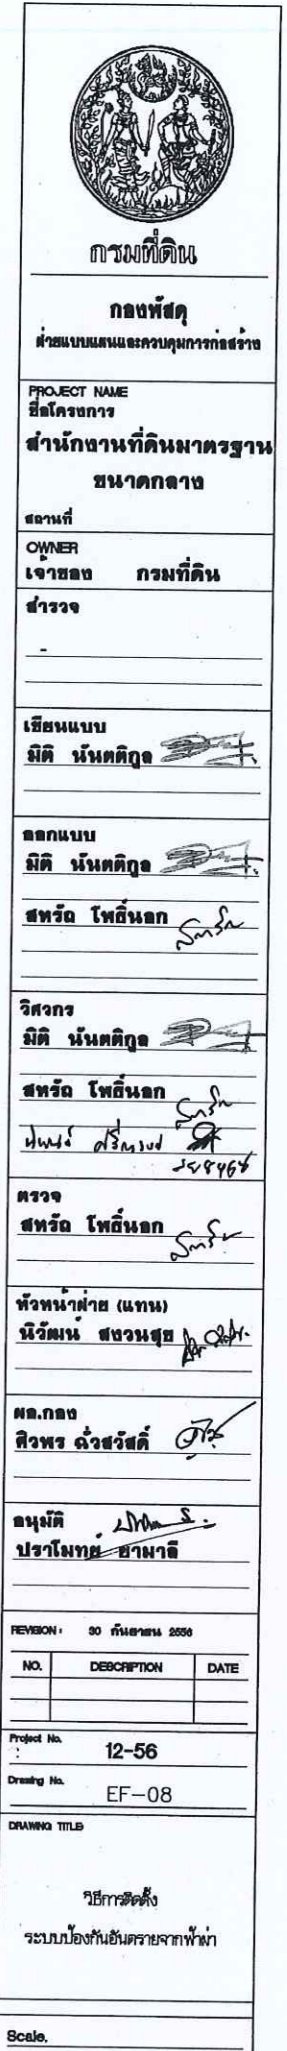 กรมที่ดิน
กองพัสดุ
ฝ่ายแบบแผนและควบคุมการก่อสร้าง
PROJECT NAME
ชื่อโครงการ
สำนักงานที่ดินมาตรฐาน
ขนาดกลาง
สถานที่
OWNER
เจ้าของ กรมที่ดิน
สำรวจ
-
เขียนแบบ
มิติ นันตติกูล
ออกแบบ
มิติ นันตติกูล
สหรัถ โพธิ์นอก
วิศวกร
มิติ นันตติกูล
สหรัถ โพธิ์นอก
ตรวจ
สหรัถ โพธิ์นอก
หัวหน้าฝ่าย (แทน)
นิวัฒน์ สงวนสุข
ผอ.กอง
ศิวพร ถั่วสวัสดิ์
อนุมัติ
ปราโมทย์ ยามาลี
REVISION : 30 กันยายน 2556
NO. DESCRIPTION DATE
Project No.
: 12-56
Drawing No.
EF-08
DRAWING TITLE
วิธีการติดตั้ง
ระบบป้องกันอันตรายจากฟ้าผ่า
Scale.